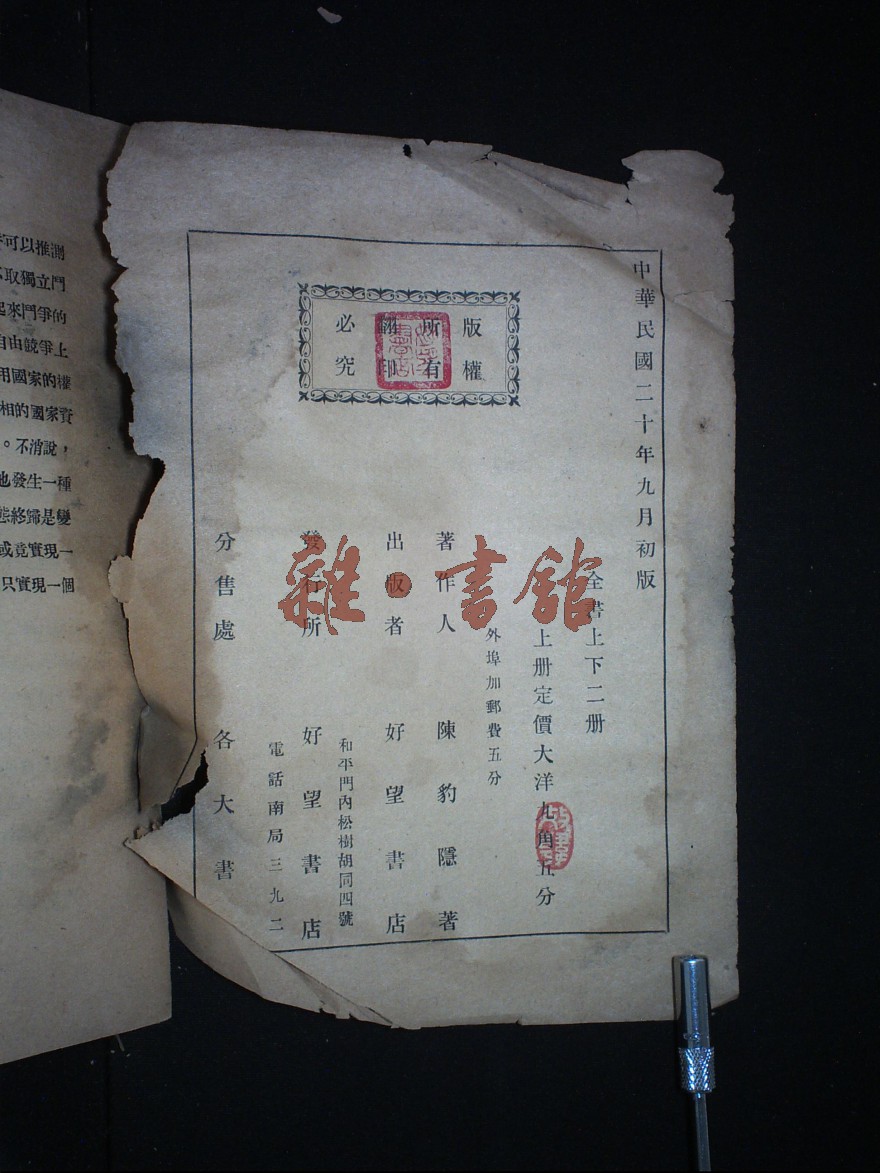 中華民國二十年九月初版
全書上下二册
上册定價大洋九角五分
外埠加郵費五分
版權
所有
翻印
必究
著作人 陳豹隱著
出版者 好望書店
發行所 好望書店
和平門內松樹胡同四號
電話南局三九二
分售處 各大書
雜·書館
可以推測
取獨立鬥
起來鬥爭的
自由競爭上
用國家的權
相的國家資
。不消說，
也發生一種
態終歸是變
或竟實現一
只實現一個